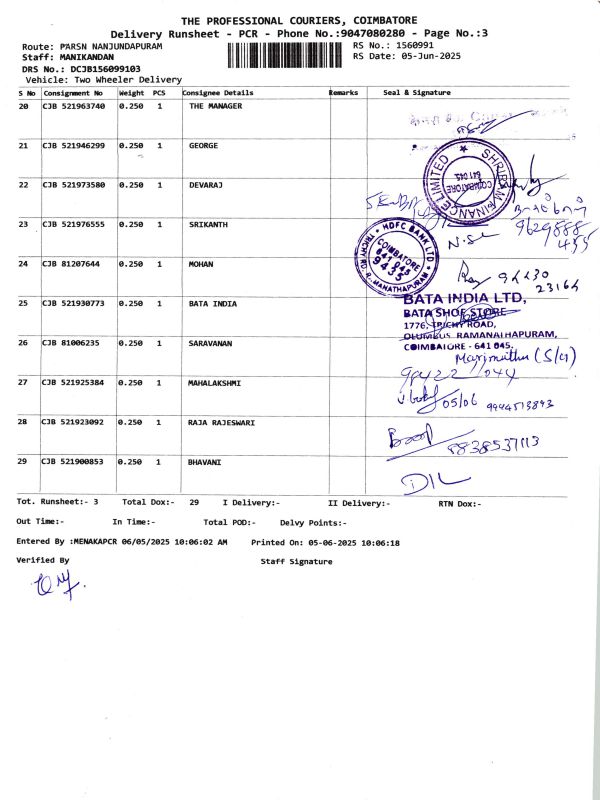 THE PROFESSIONAL COURIERS, COIMBATORE
Delivery Runsheet - PCR - Phone No.:9047080280 - Page No.:3
Route: PARSN NANJUNDAPURAM RS No.: 1560991
Staff: MANIKANDAN RS Date: 05-Jun-2025
DRS No.: DCJB156099103
Vehicle: Two Wheeler Delivery
S No Consignment No Weight PCS Consignee Details Remarks Seal & Signature
20 CJB 521963740 0.250 1 THE MANAGER
21 CJB 521946299 0.250 1 GEORGE
SHRIRAM FINANCE LIMITED
COIMBATORE
641 045.
22 CJB 521973580 0.250 1 DEVARAJ
9629888
435
23 CJB 521976555 0.250 1 SRIKANTH
HDFC BANK LTD
TRICHY RD. RAMANATHAPURAM
COIMBATORE
641 045
9435
24 CJB 81207644 0.250 1 MOHAN
23164
25 CJB 521930773 0.250 1 BATA INDIA
BATA INDIA LTD,
BATA SHOE STORE
1776, TRICHY ROAD,
OLUMBUS RAMANATHAPURAM,
COIMBATORE - 641 045.
26 CJB 81006235 0.250 1 SARAVANAN
Marimuthu (S/G)
27 CJB 521925384 0.250 1 MAHALAKSHMI
05/06 9944513893
28 CJB 521923092 0.250 1 RAJA RAJESWARI
8838537113
29 CJB 521900853 0.250 1 BHAVANI
Tot. Runsheet:- 3 Total Dox:- 29 I Delivery:- II Delivery:- RTN Dox:-
Out Time:- In Time:- Total POD:- Delvy Points:-
Entered By :MENAKAPCR 06/05/2025 10:06:02 AM Printed On: 05-06-2025 10:06:18
Verified By Staff Signature